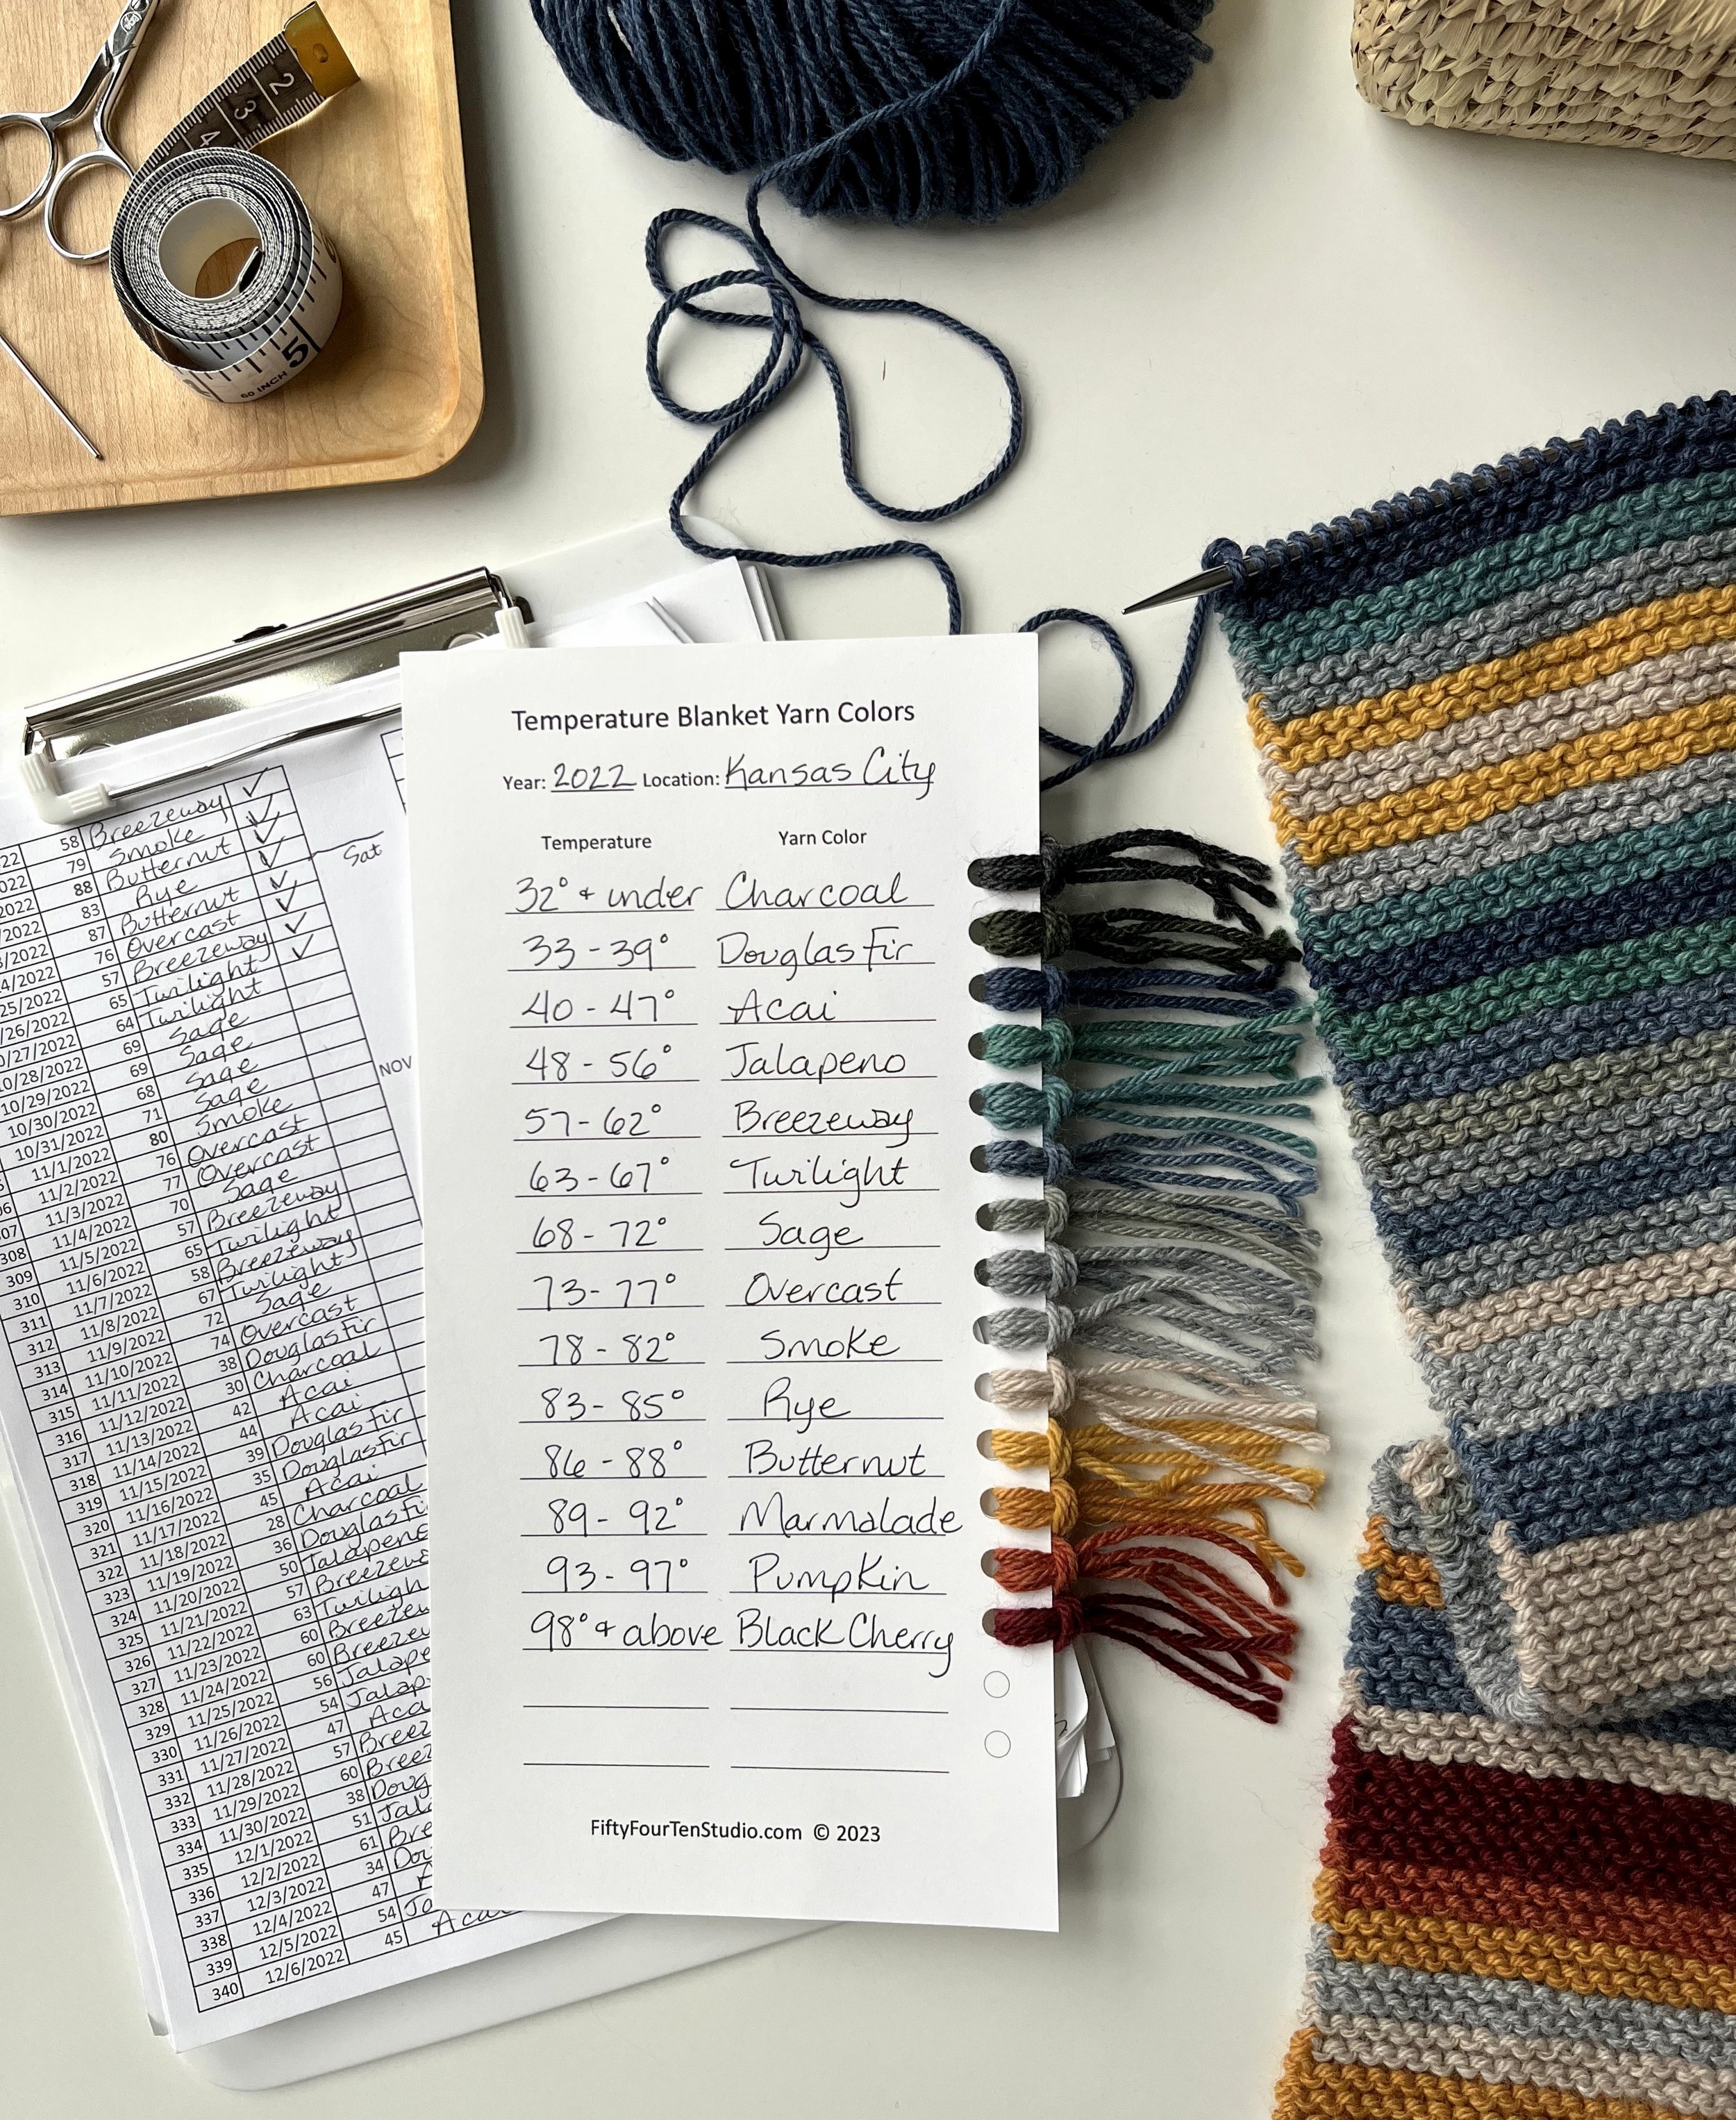 2
3
4
5
60 INCH
Temperature Blanket Yarn Colors
Year: 2022 Location: Kansas City
Temperature Yarn Color
32° & under Charcoal
33 - 39° Douglas Fir
40 - 47° Acai
48 - 56° Jalapeno
57 - 62° Breezeway
63 - 67° Twilight
68 - 72° Sage
73 - 77° Overcast
78 - 82° Smoke
83 - 85° Rye
86 - 88° Butternut
89 - 92° Marmalade
93 - 97° Pumpkin
98° & above Black Cherry
FiftyFourTenStudio.com © 2023
22 58 Breezeway ✓
022 79 Smoke ✓
2022 88 Butternut ✓
/2022 83 Rye ✓
3/2022 87 Butternut ✓
4/2022 76 Overcast ✓
25/2022 57 Breezeway ✓
/26/2022 65 Twilight
0/27/2022 64 Twilight
10/28/2022 69 Sage
10/29/2022 69 Sage
10/30/2022 68 Sage
10/31/2022 71 Sage
11/1/2022 80 Smoke
06 11/2/2022 76 Overcast
07 11/3/2022 77 Overcast
308 11/4/2022 70 Sage
309 11/5/2022 57 Breezeway
310 11/6/2022 65 Twilight
311 11/7/2022 58 Breezeway
312 11/8/2022 67 Twilight
313 11/9/2022 72 Sage
314 11/10/2022 74 Overcast
315 11/11/2022 38 Douglas Fir
316 11/12/2022 30 Charcoal
317 11/13/2022 42 Acai
318 11/14/2022 44 Acai
319 11/15/2022 39 Douglas Fir
320 11/16/2022 35 Douglas Fir
321 11/17/2022 45 Acai
322 11/18/2022 28 Charcoal
323 11/19/2022 36 Douglas Fi
324 11/20/2022 50 Jalapeno
325 11/21/2022 57 Breeze
326 11/22/2022 63 Twiligh
327 11/23/2022 60 Breeze
328 11/24/2022 60 Breeze
329 11/25/2022 56 Jalape
330 11/26/2022 54 Jalap
331 11/27/2022 47 Aca
332 11/28/2022 57 Breez
333 11/29/2022 60 Breez
334 11/30/2022 38 Doug
335 12/1/2022 51 Jal
336 12/2/2022 61 Bre
337 12/3/2022 34 Dou
338 12/4/2022 47 A
339 12/5/2022 54 Ja
340 12/6/2022 45 Acai
Sat
NOV